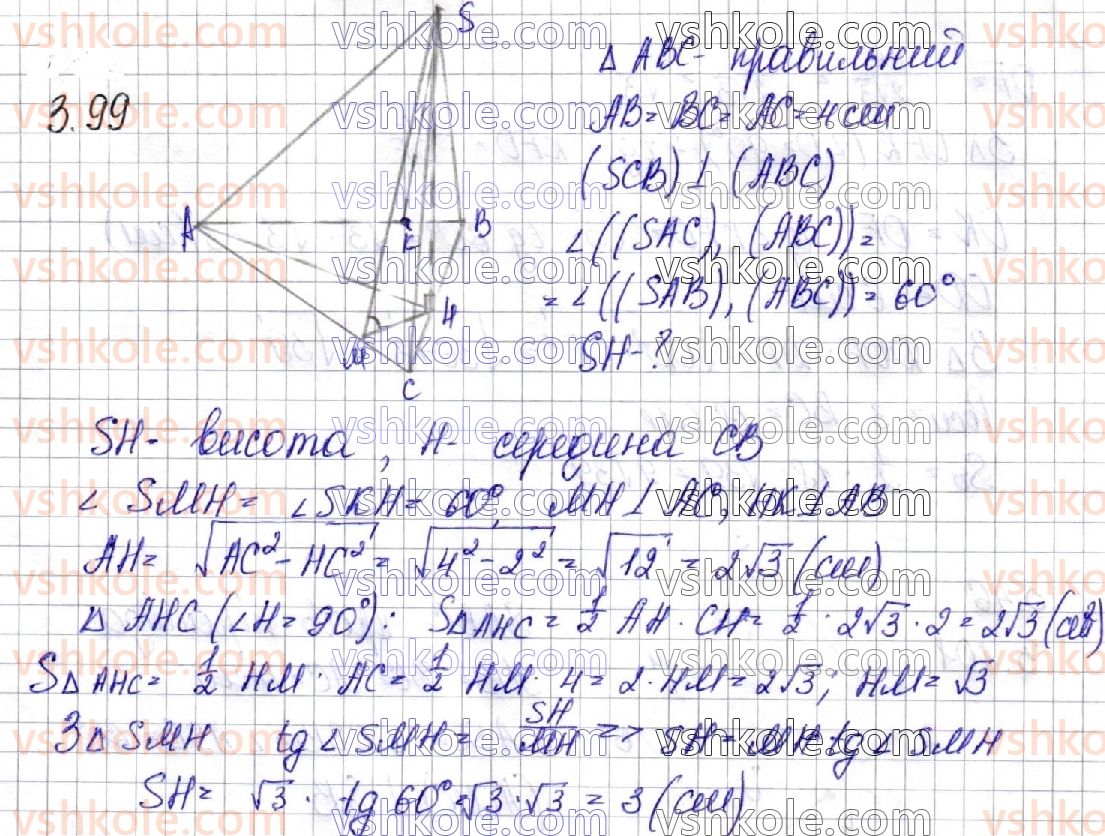 3.99
S
A
K
B
H
M
C
△ ABC - правильний
AB = BC = AC = 4 см
(SCB) ⊥ (ABC)
∠((SAC), (ABC)) =
= ∠((SAB), (ABC)) = 60°
SH - ?
SH - висота, H - середина CB
∠ SMH = ∠SKH = 60°, MH ⊥ AC, HK ⊥ AB
AH = √(AC² - HC²) = √(4² - 2²) = √12 = 2√3 (см)
△ AHC (∠H = 90°): S△AHC = 1/2 AH · CH = 1/2 · 2√3 · 2 = 2√3 (см²)
S△AHC = 1/2 HM · AC = 1/2 HM · 4 = 2 · HM = 2√3; HM = √3
З △ SMH tg ∠ SMH = SH/MH => SH = MH tg ∠ SMH
SH = √3 · tg 60° = √3 · √3 = 3 (см)
vshkole.com